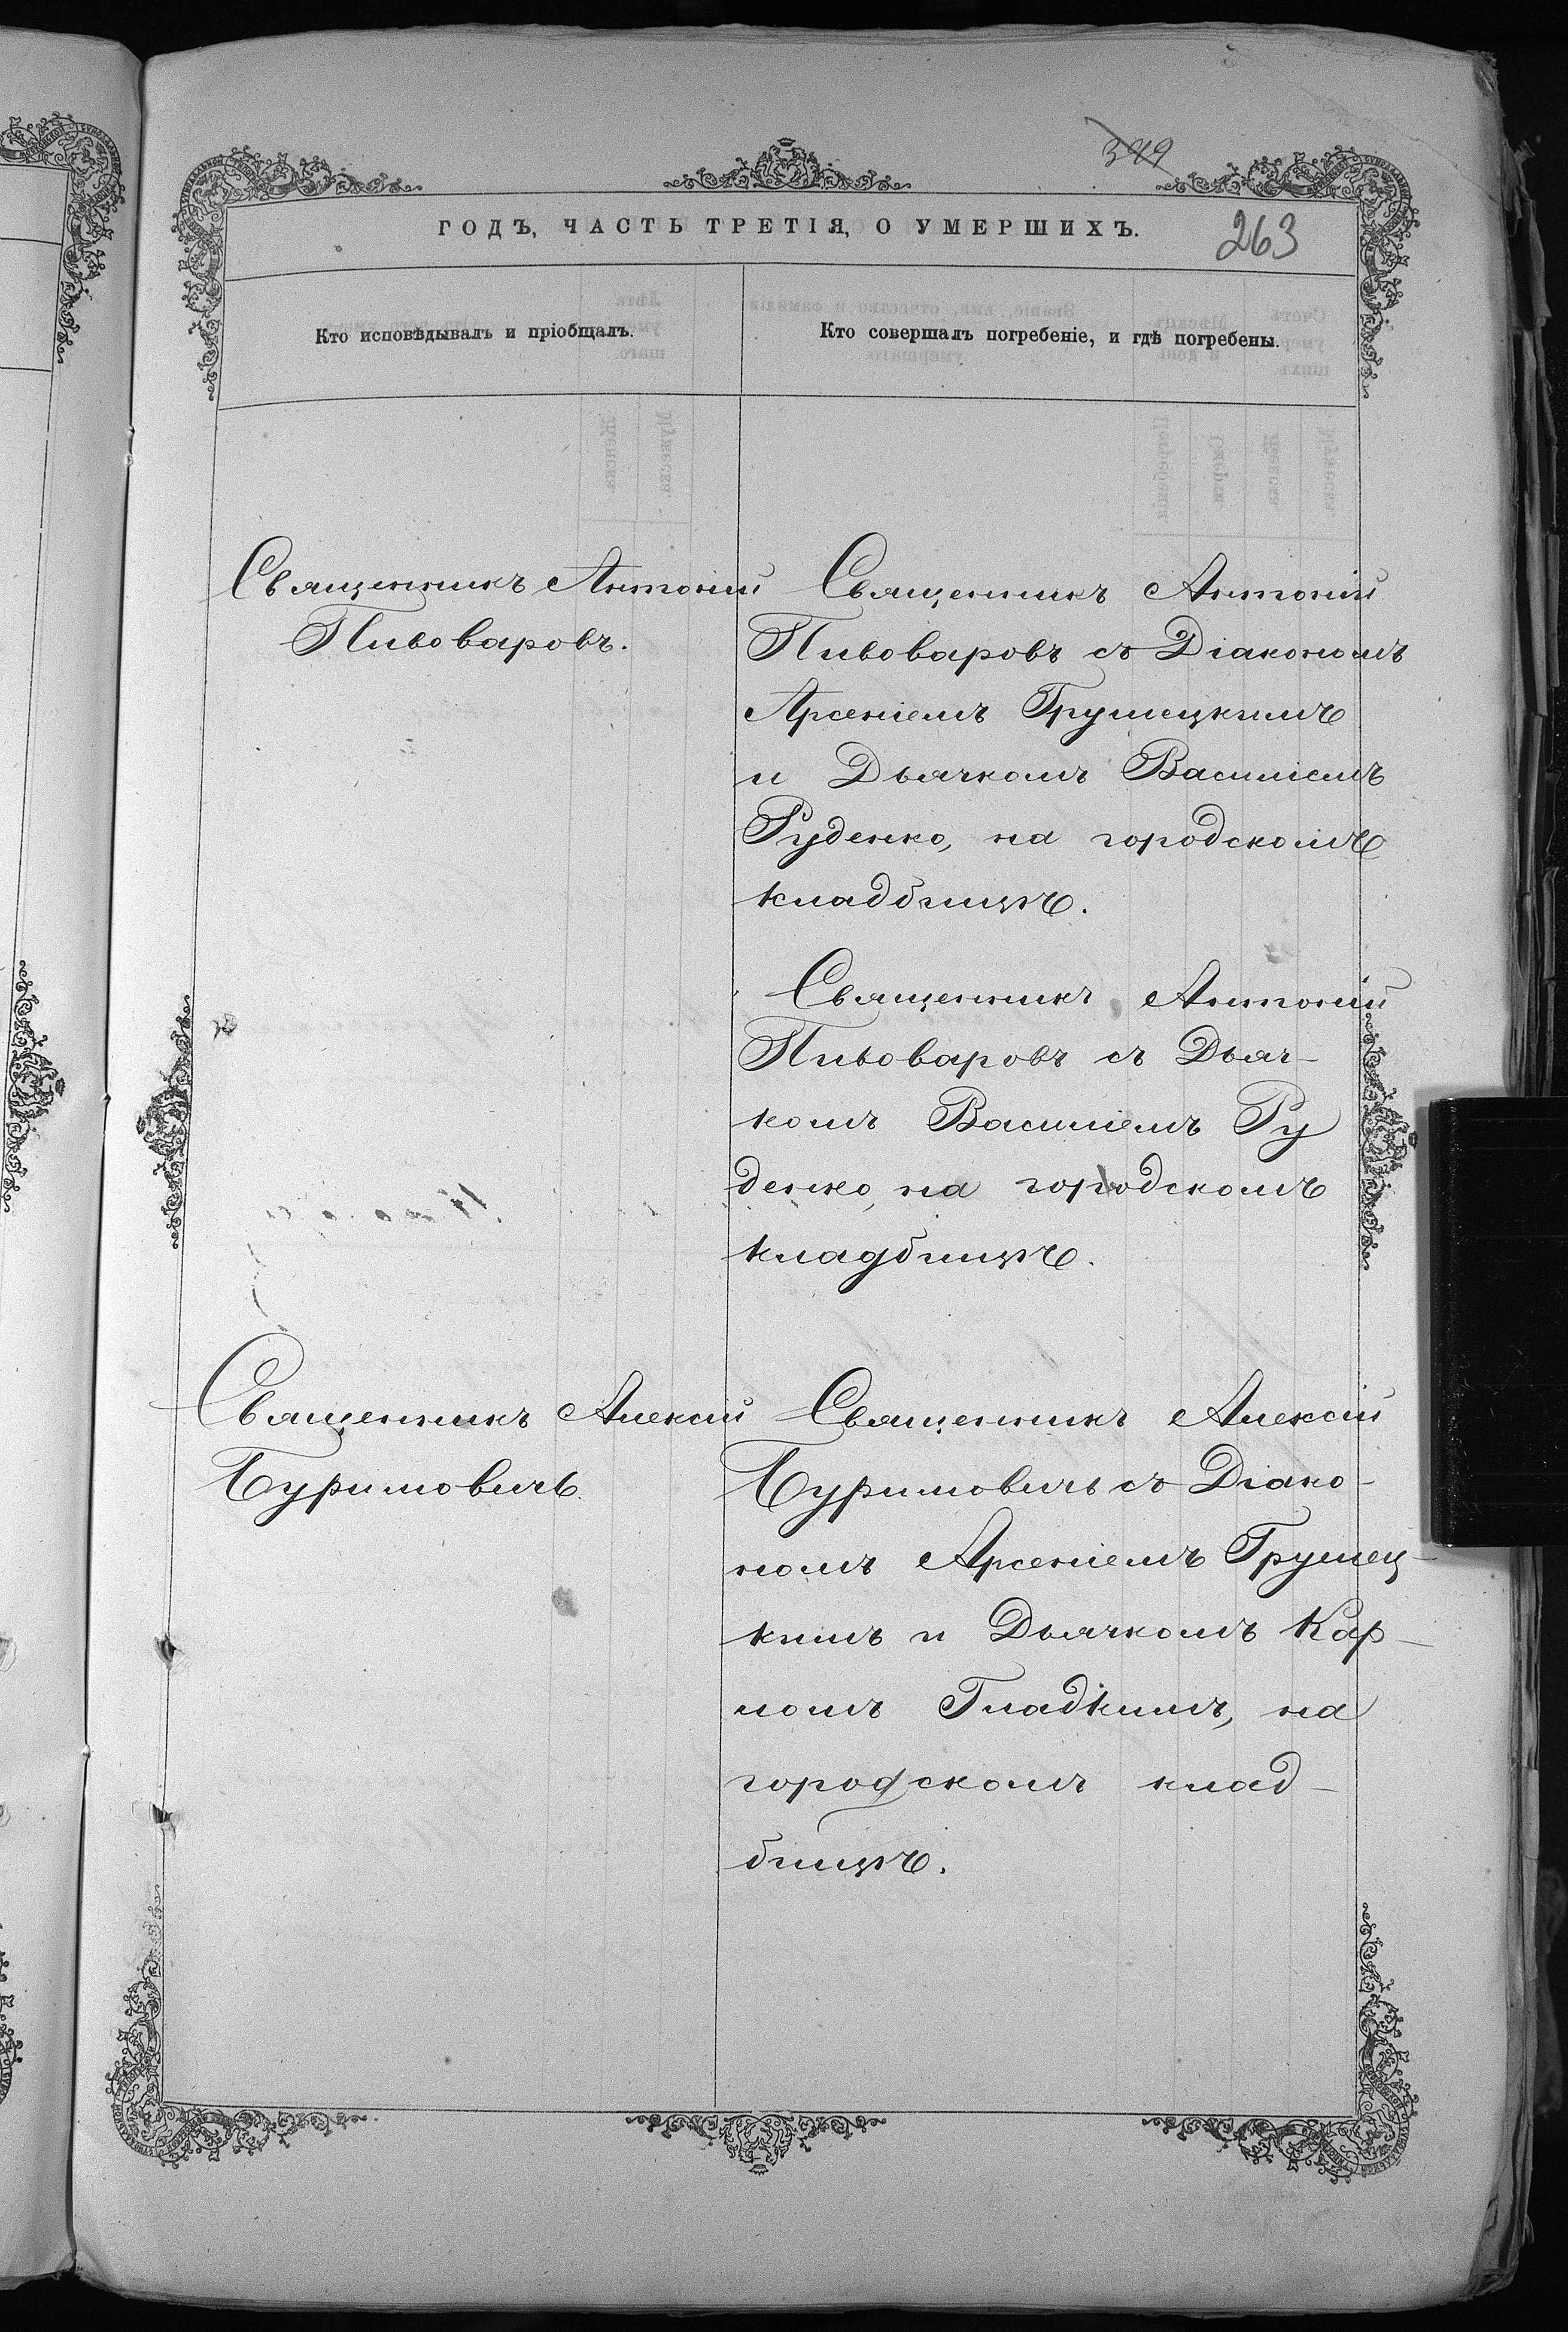 399
ГОДЪ, ЧАСТЬ ТРЕТІЯ, О УМЕРШИХЪ.
263
Кто исповѣдывалъ и пріобщалъ.
Кто совершалъ погребеніе, и гдѣ погребены.
Священникъ Антоній
Пивоваровъ.
Священникъ Антоній
Пивоваровъ съ Діакономъ
Арсеніемъ Грушецкимъ
и Дьячкомъ Василіемъ
Руденко, на городскомъ
кладбищѣ.
Священникъ Антоній
Пивоваровъ съ Дьяч-
комъ Василіемъ Ру
денко, на городскомъ
кладбищѣ.
Священникъ Алексій
Буримовичъ.
Священникъ Алексій
Буримовичъ съ Діако-
номъ Арсеніемъ Грушец-
кимъ и Дьячкомъ Кар-
помъ Гладкимъ, на
городскомъ клад-
бищѣ.